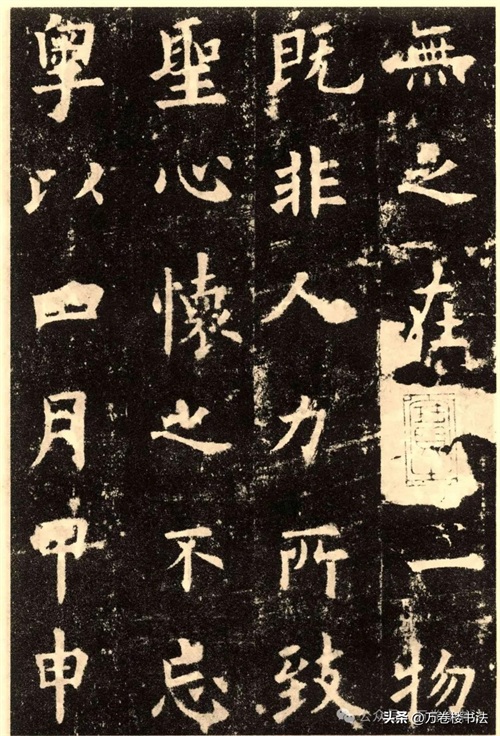 無之在一物
既非人力所致
聖心懷之不忘
粵以四月甲申
头条 @万卷楼书法
公众号